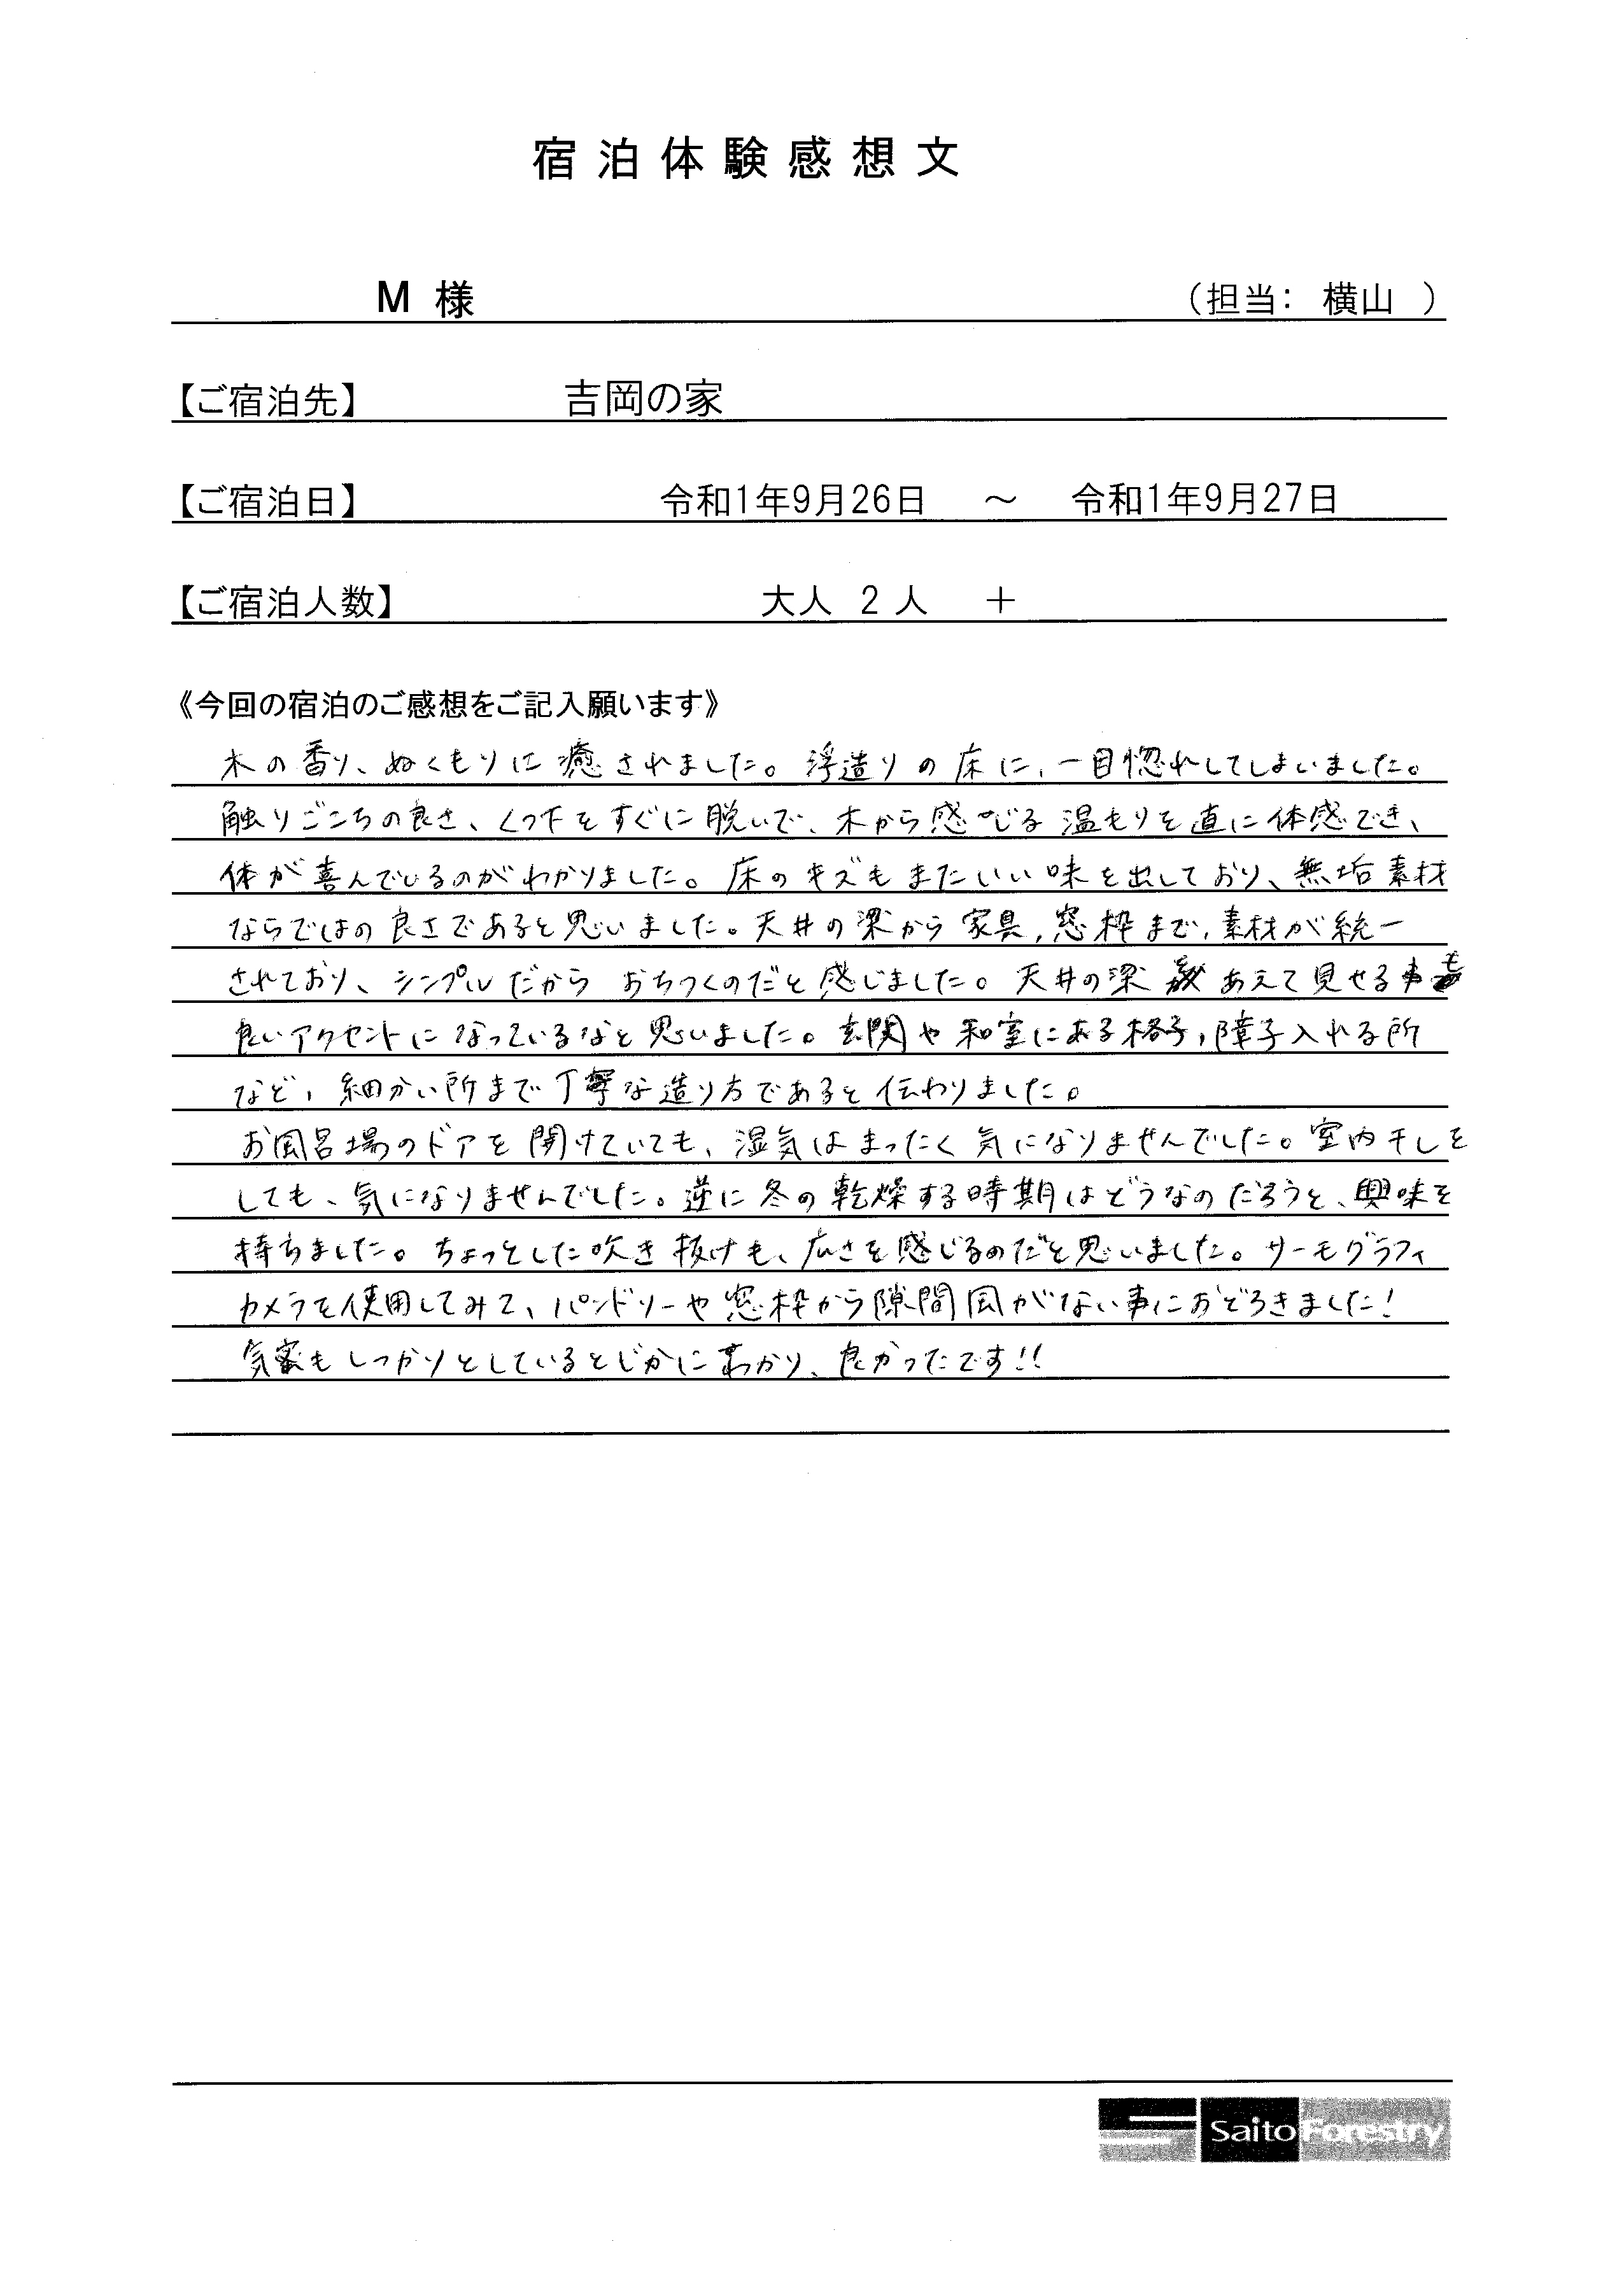 宿泊体験感想文
M 様 （担当： 横山 ）
【ご宿泊先】 吉岡の家
【ご宿泊日】 令和1年9月26日 ～ 令和1年9月27日
【ご宿泊人数】 大人 2 人 ＋
《今回の宿泊のご感想をご記入願います》
木の香り、ぬくもりに癒されました。浮造りの床に、一目惚れしてしまいました。
触りごこちの良さ、くつ下をすぐに脱いで、木から感じる温もりを直に体感でき、
体が喜んでいるのがわかりました。床のキズもまたいい味を出しており、無垢素材
ならではの良さであると思いました。天井の梁から家具,窓枠まで,素材が統一
されており、シンプルだから おちつくのだと感じました。天井の梁 あえて見せる事も
良いアクセントになっているなと思いました。玄関や和室にある格子,障子入れる所
など,細かい所まで丁寧な造り方であると伝わりました。
お風呂場のドアを開けていても、湿気はまったく気になりませんでした。室内干しを
しても、気になりませんでした。逆に冬の乾燥する時期はどうなのだろうと、興味を
持ちました。ちょっとした吹き抜けも、広さを感じるのだと思いました。サーモグラフィ
カメラを使用してみて、パンドリーや窓枠から隙間風がない事におどろきました!
気密もしっかりとしているとじかにわかり、良かったです!!
Saito Forestry